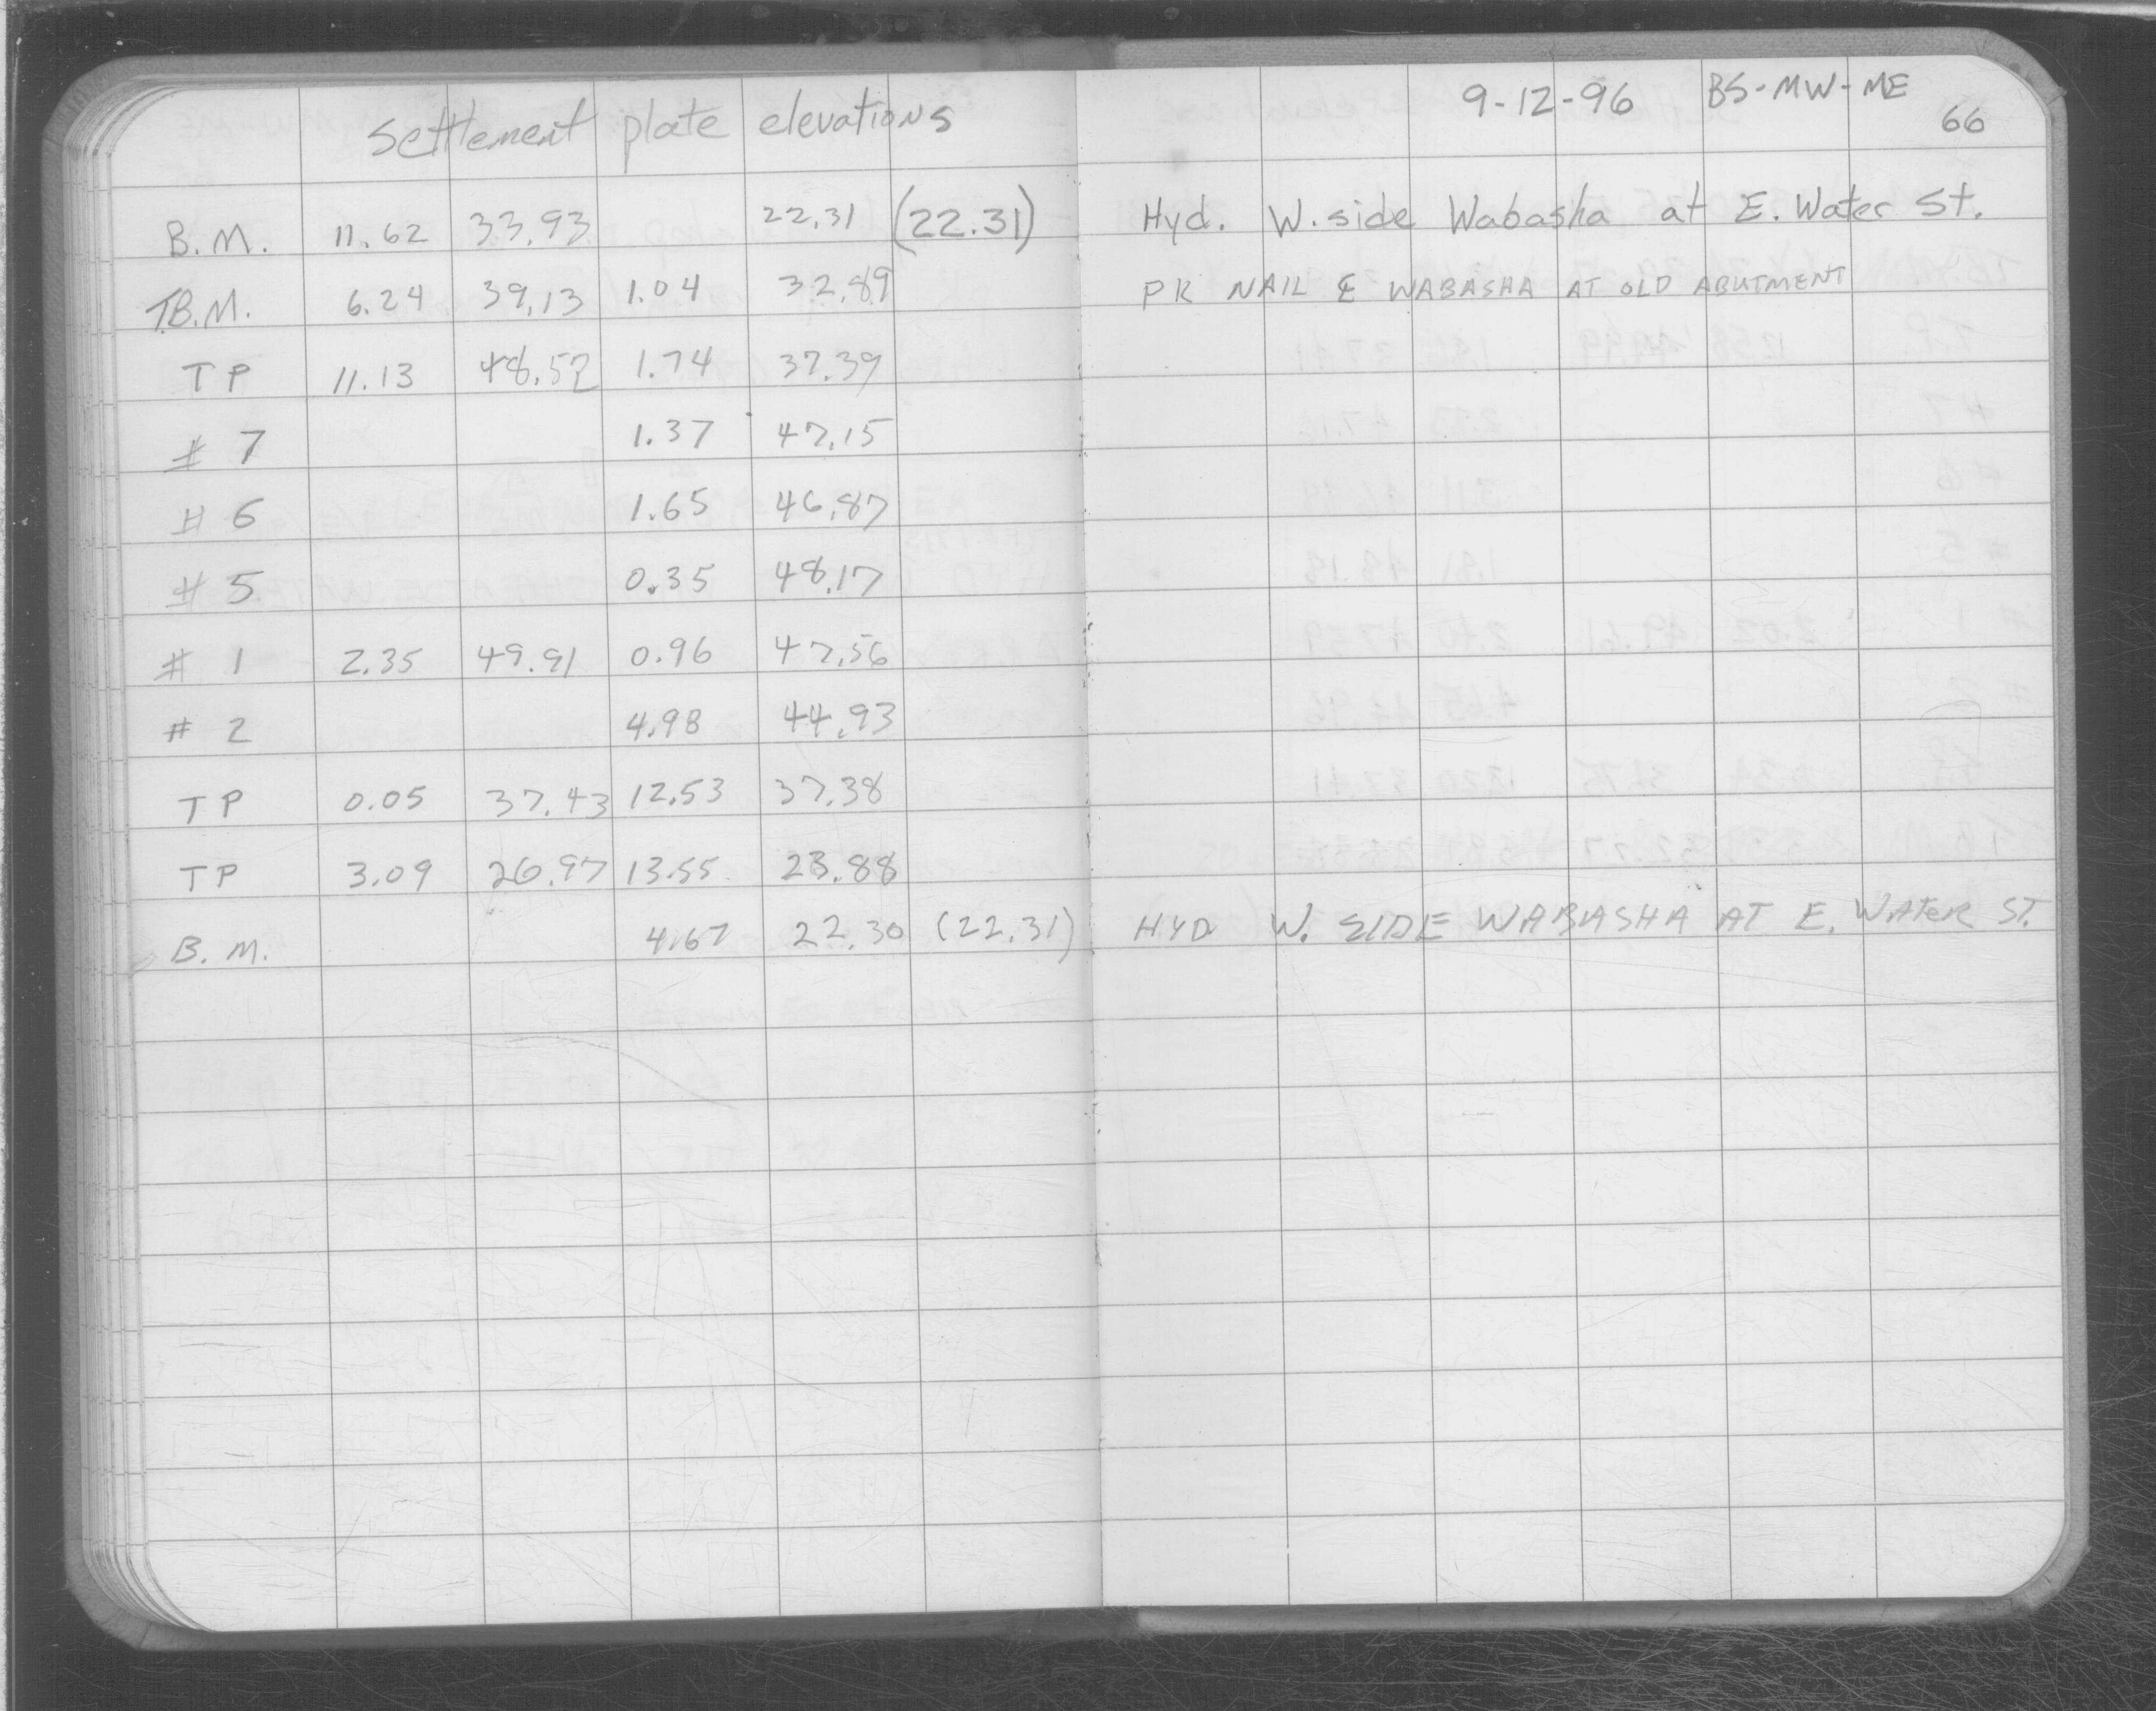 settlement plate elevations 9-12-96 BS-MW-ME
66
B.M. 11.62 33.93 22.31 (22.31) Hyd. W. side Wabasha at E. Water St.
T.B.M. 6.24 39.13 1.04 32.89 PK NAIL ℄ WABASHA AT OLD ABUTMENT
TP 11.13 48.52 1.74 37.39
# 7 1.37 47.15
# 6 1.65 46.87
# 5 0.35 48.17
# 1 2.35 49.91 0.96 47.56
# 2 4.98 44.93
TP 0.05 37.43 12.53 37.38
TP 3.09 26.97 13.55 23.88
B.M. 4.67 22.30 (22.31) HYD W. SIDE WABASHA AT E. WATER ST.